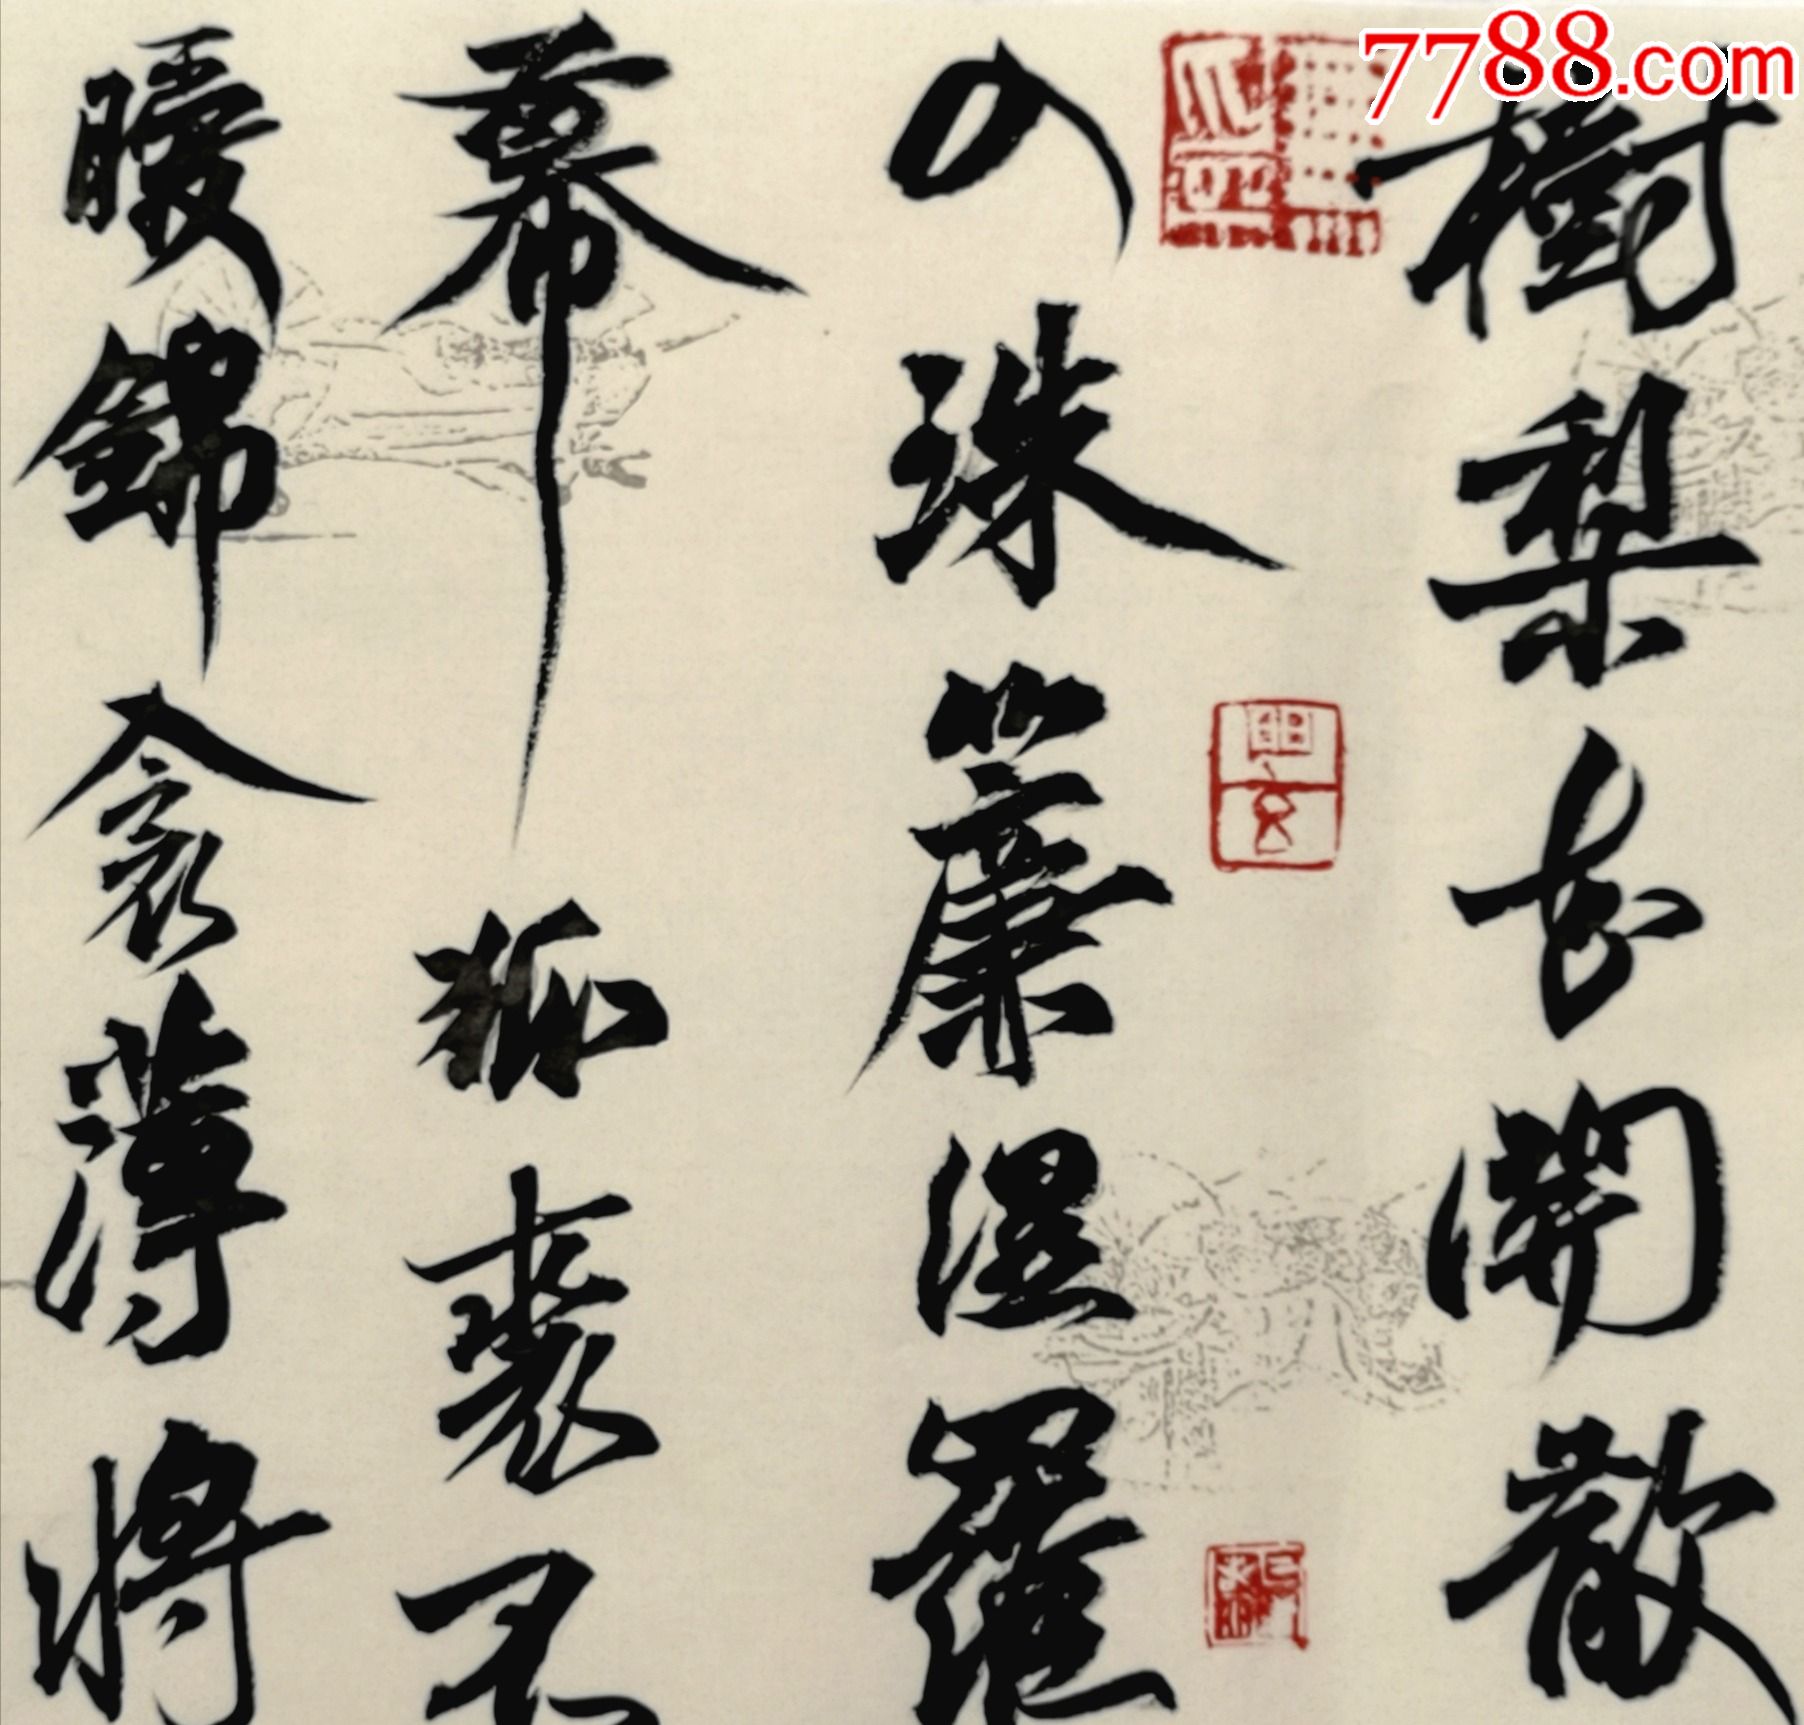 7788.com
樹梨花開散
入珠簾濕羅
幕狐裘不
暖錦衾薄將